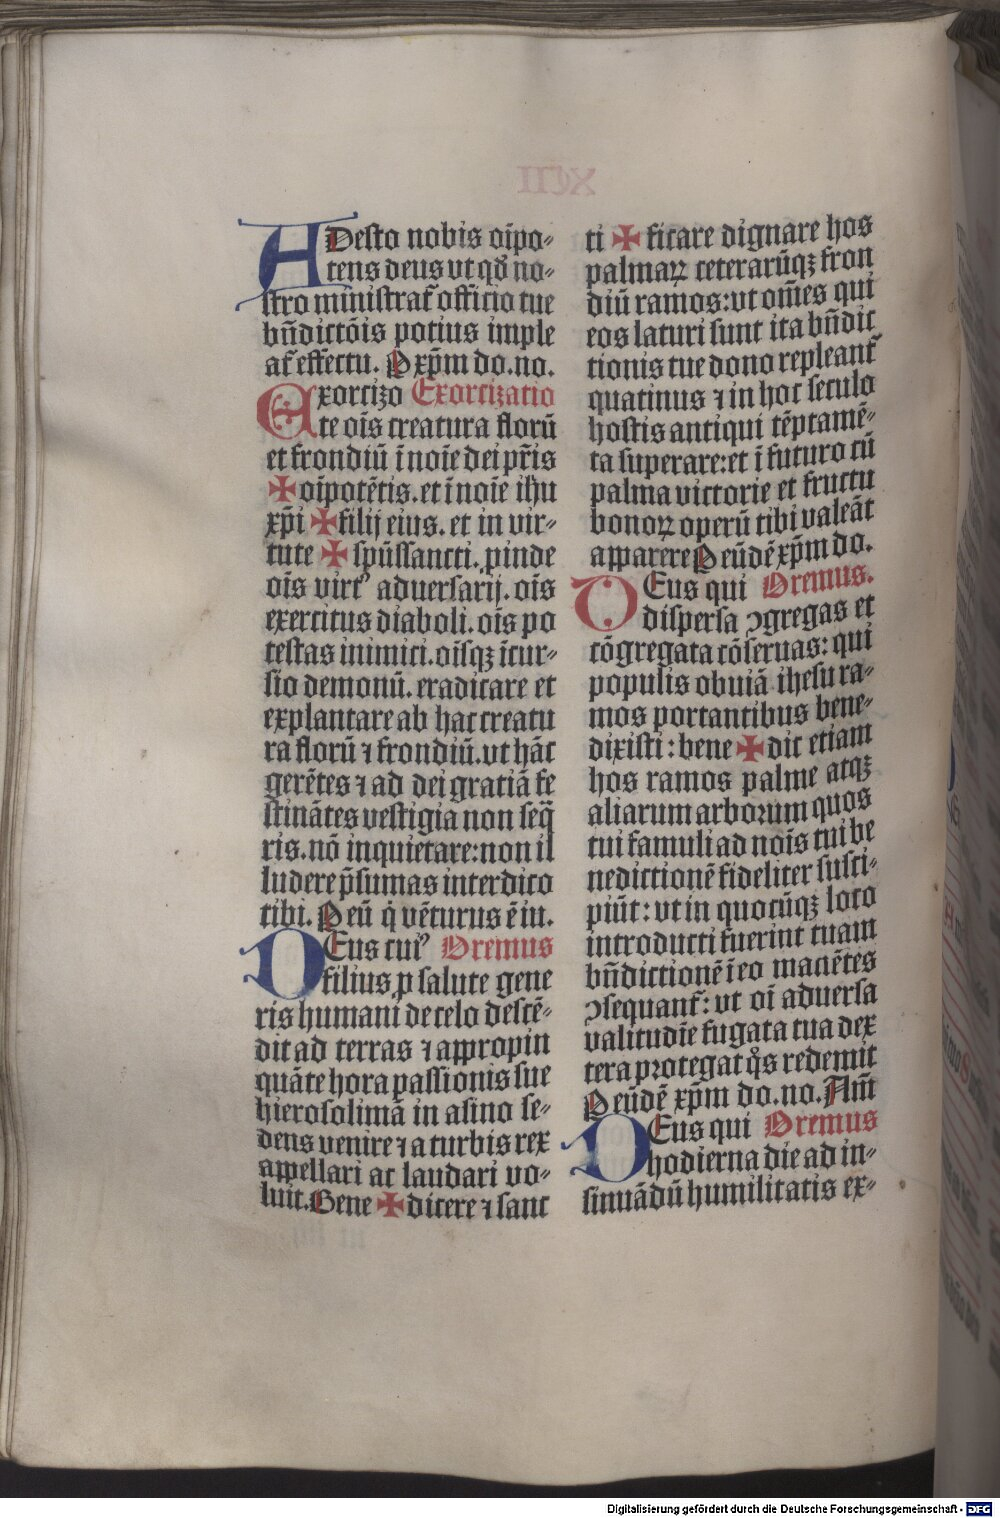 ADesto nobis oīpo-
tens deus vt qđ no-
stro ministrat᷑ officio tue
bn̄dictōis potius imple
at᷑ effectu. P xp̄m do.no.
Exorcizo Exorcizatio
te oīs creatura florū
et frondiū ī noīe dei pr̄is
✠ oīpotētis. et ī noīe ihu
xp̄i ✠ filij eius. et in vir-
tute ✠ spūssancti. pinde
oīs virtꝰ aduersarij. oīs
exercitus diaboli. oīs po
testas inimici. oīsqꝫ īcur-
sio demonū. eradicare et
explantare ab hac creatu
ra florū ⁊ frondiū. vt hāc
gerētes ⁊ ad dei gratiā fe
stinātes vestigia non seq̄
ris. nō inquietare: non il
ludere p̄sumas interdico
tibi. P eū q̇ vēturus ē iu.
DEus cuiꝰ Oremus
filius ꝓ salute gene
ris humani de celo descē-
dit ad terras ⁊ appropin
quāte hora passionis sue
hierosolimā in asino se-
dens venire ⁊ a turbis rex
appellari ac laudari vo-
luit. Bene ✠ dicere ⁊ sanc
ti ✠ ficare dignare hos
palmaꝝ ceterarūqꝫ fron
diū ramos: vt om̄es qui
eos laturi sunt ita bn̄dic
tionis tue dono repleant᷑
quatinus ⁊ in hoc seculo
hostis antiqui tēptamē-
ta superare: et ī futuro cū
palma victorie et fructu
bonoꝝ operū tibi valeāt
apparere P eūdē xp̄m do.
DEus qui Oremus.
dispersa ꝯgregas et
cōgregata cōseruas: qui
populis obuiā ihesu ra-
mos portantibus bene-
dixisti: bene ✠ dic etiam
hos ramos palme atqꝫ
aliarum arborum quos
tui famuli ad nois̄ tui be
nedictionē fideliter susci-
piūt: vt in quocūqꝫ loco
introducti fuerint tuam
bn̄dictionē ī eo manētes
ꝯsequant᷑: vt oī aduersa
valitudīe fugata tua dex
tera protegat q̊s redemit
P eūdē xp̄m do.no. Am̄
DEus qui Oremus
hodierna die ad in-
sinuādū humilitatis ex-
Digitalisierung gefördert durch die Deutsche Forschungsgemeinschaft - DFG